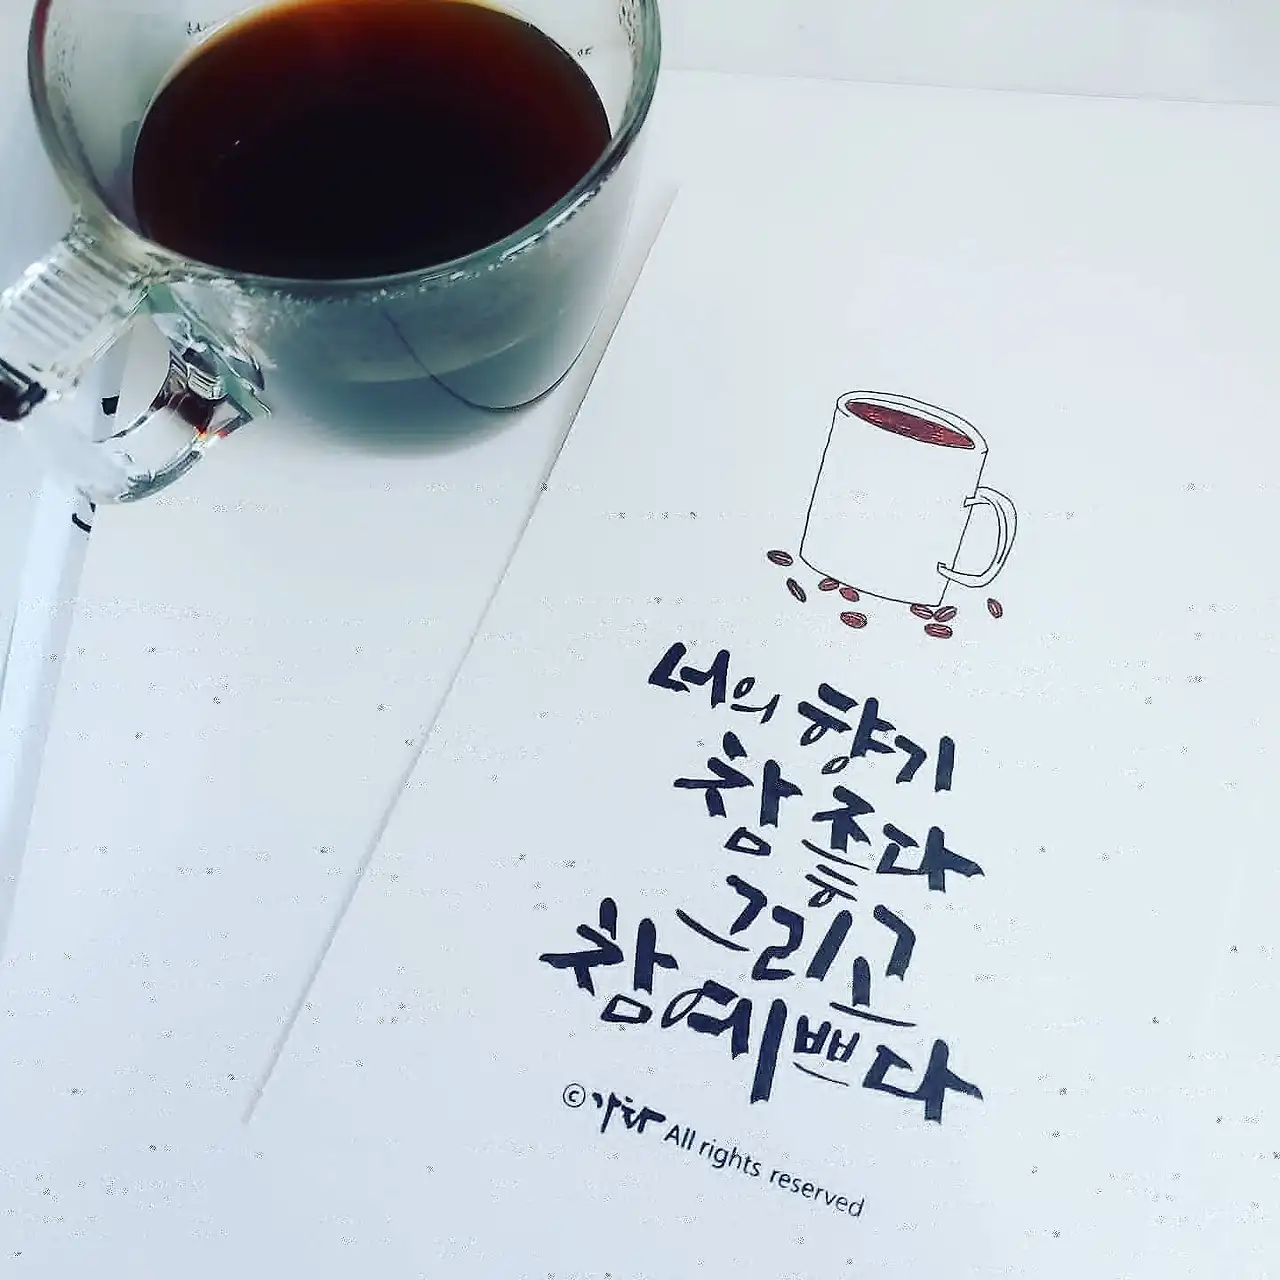 너의 향기
참 좋다
그리고
참 예쁘다
© All rights reserved